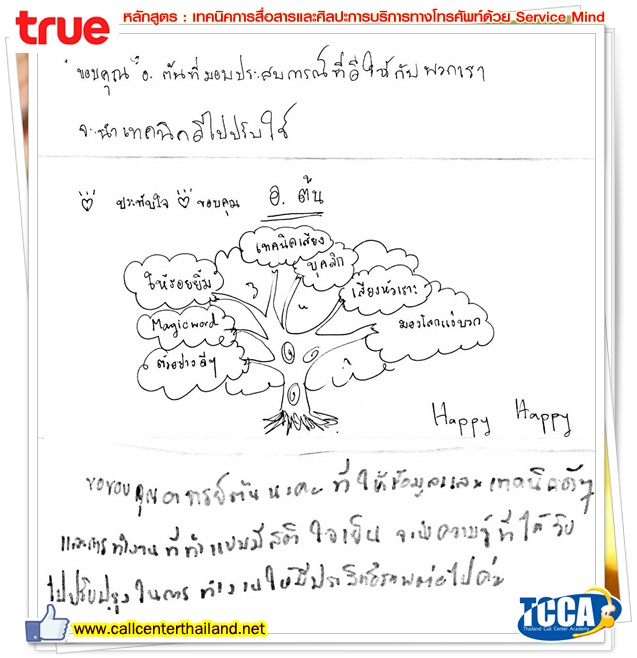 true
หลักสูตร : เทคนิคการสื่อสารและศิลปะการบริการทางโทรศัพท์ด้วย Service Mind
"ขอบคุณ" อ. ต้นที่มอบประสบการณ์ที่ดีให้กับพวกเรา
จะนำเทคนิคดีไปปรับใช้
ประทับใจ ขอบคุณ อ. ต้น
เทคนิคเสียง
บุคลิก
ให้รอยยิ้ม
เสียงหัวเราะ
Magic word
มองโลกแง่บวก
ตัวอย่างดีๆ
Happy Happy
ขอขอบคุณอาจารย์ต้นนะคะ ที่ให้ข้อมูลและเทคนิคดีๆ
และการทำงานที่ทำแบบมีสติ ใจเย็น จะนำความรู้ที่ได้รับ
ไปปรับปรุงในการทำงานให้มีประสิทธิภาพต่อไปค่ะ
www.callcenterthailand.net
TCCA
Thailand Call Center Academy